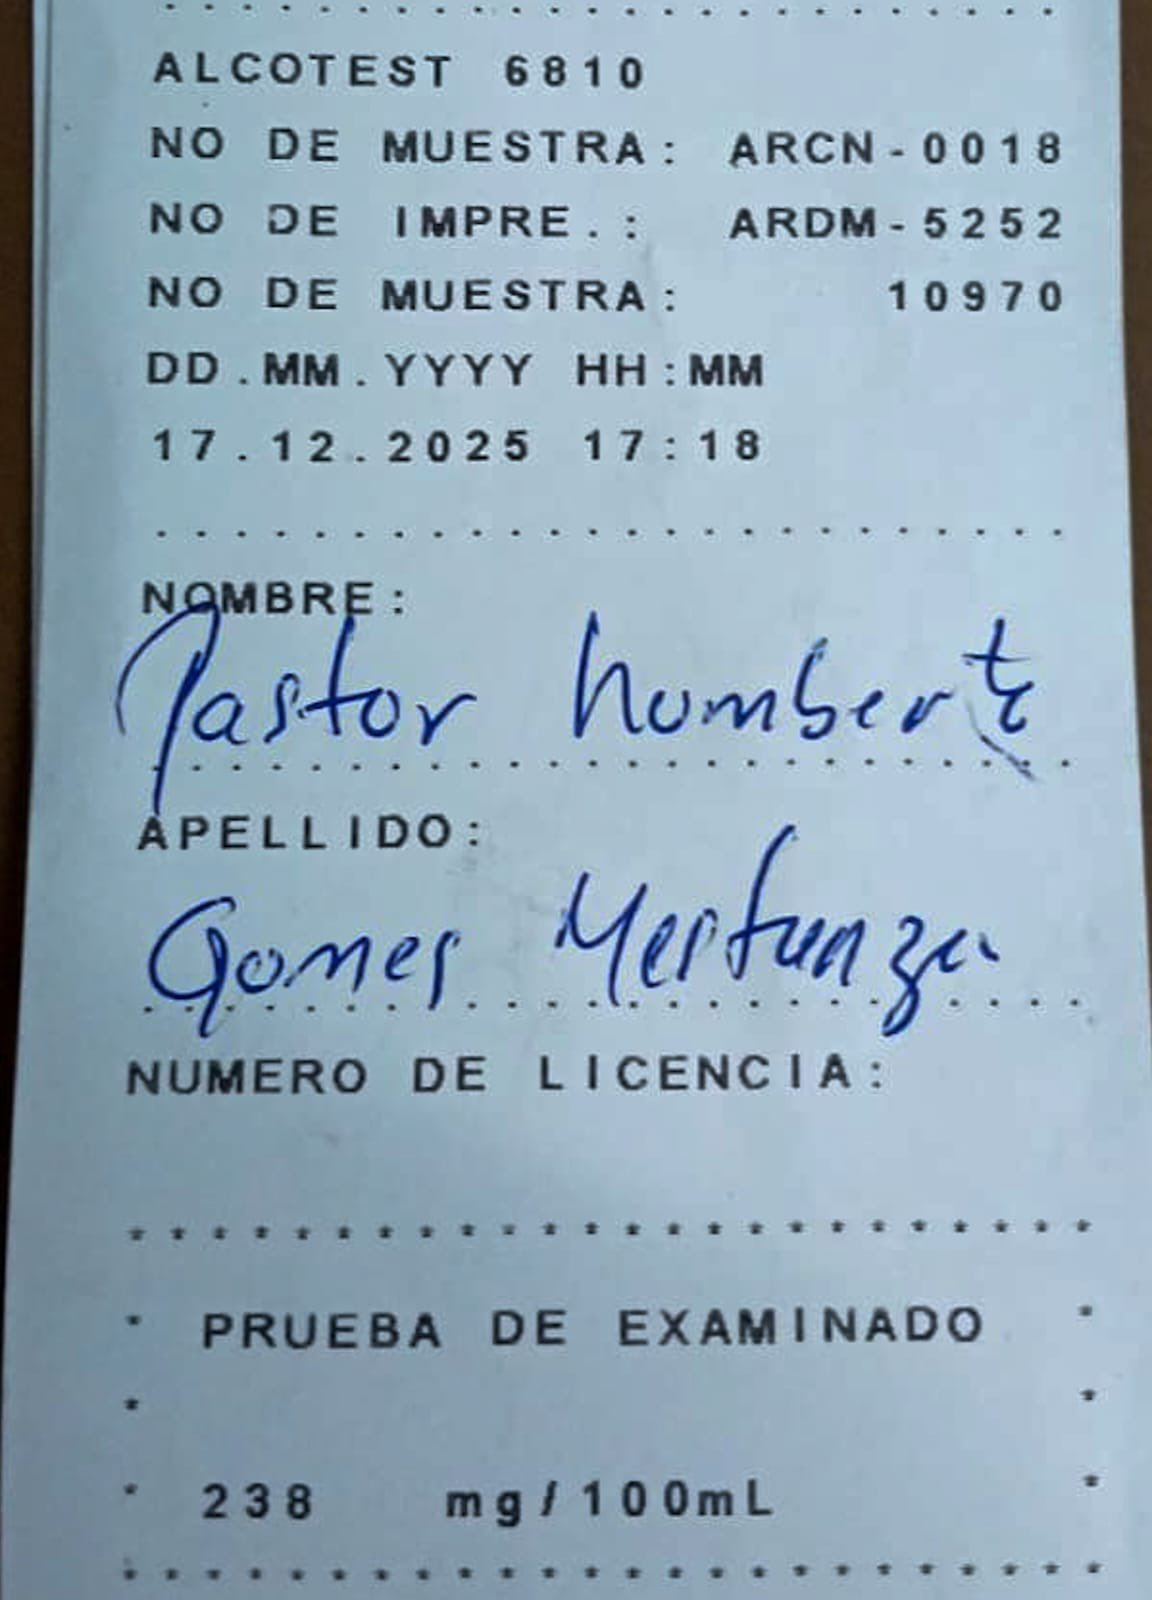 ALCOTEST 6810
NO DE MUESTRA: ARCN-0018
NO DE IMPRE.: ARDM-5252
NO DE MUESTRA: 10970
DD.MM.YYYY HH:MM
17.12.2025 17:18
NOMBRE:
Pastor humberto
APELLIDO:
Gomes Mestanza
NUMERO DE LICENCIA:
PRUEBA DE EXAMINADO
238 mg/100mL